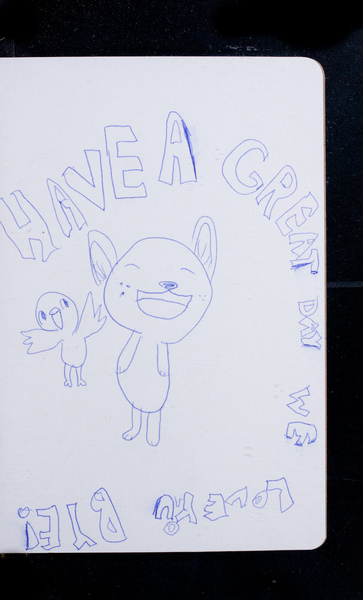 HAVE A GREAT DAY WE
LOVE YOU BYE!